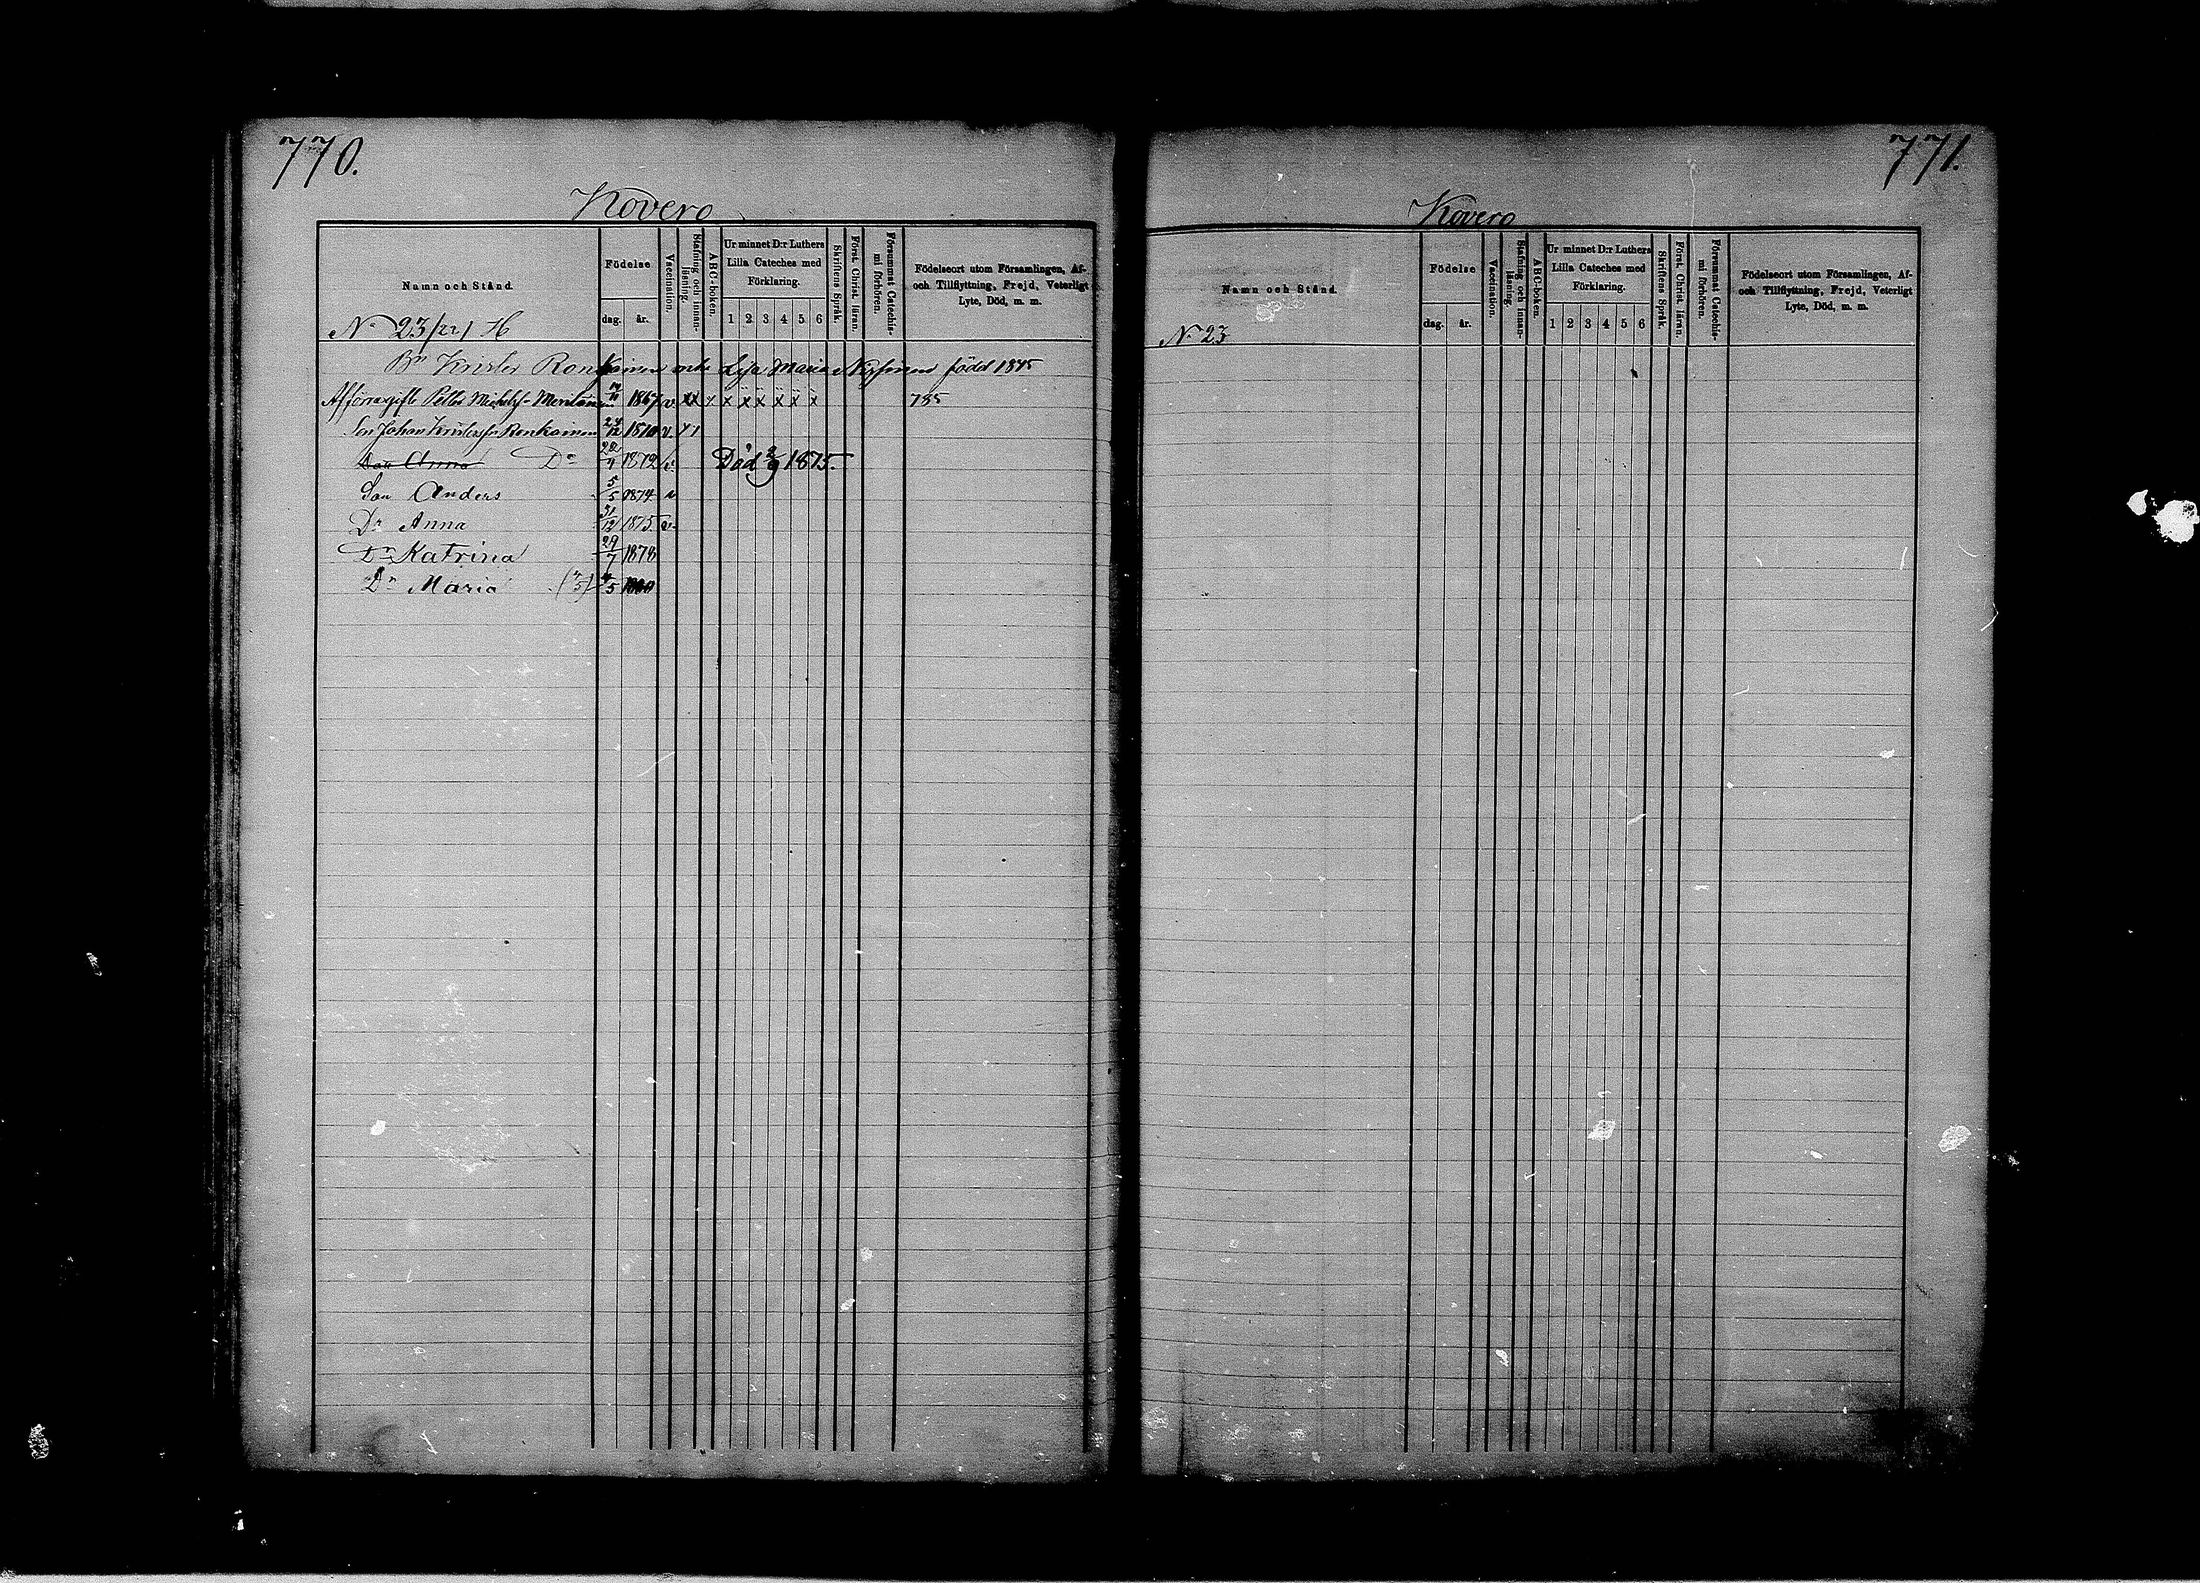 770.
Kovero
Namn och Stånd.
Födelse
dag. år.
Vaccination.
Stafning och innanläsning.
ABC-boken.
Ur minnet D:r Luthers
Lilla Cateches med
Förklaring.
1 2 3 4 5 6
Skriftens Språk.
Först. Christ. läran.
Försummat Catechismi förhören.
Födelseort utom Församlingen, Af-
och Tillflyttning, Frejd, Veterligt
Lyte, Död, m. m.
No 23/22 1 H
Bn Krister Ronkainen enka Lisa Maria född 1845
Af förra gifte Petter Michelss. 1867 v. xx x x x x x x x 735
Son Johan Kristerss. Ronkainen 24/12 1870 v. x 1
Dr Anna Do 22 1872 v. Död 2/9 1875.
Son Anders 5/5 1874 v
Dr Anna 31/12 1875 v.
Dr Katrina 29/7 1878
Dr Maria 5 1880
771.
Kovero
Namn och Stånd.
Födelse
dag. år.
Vaccination.
Stafning och innanläsning.
ABC-boken.
Ur minnet D:r Luthers
Lilla Cateches med
Förklaring.
1 2 3 4 5 6
Skriftens Språk.
Först. Christ. läran.
Försummat Catechismi förhören.
Födelseort utom Församlingen, Af-
och Tillflyttning, Frejd, Veterligt
Lyte, Död, m. m.
No 23